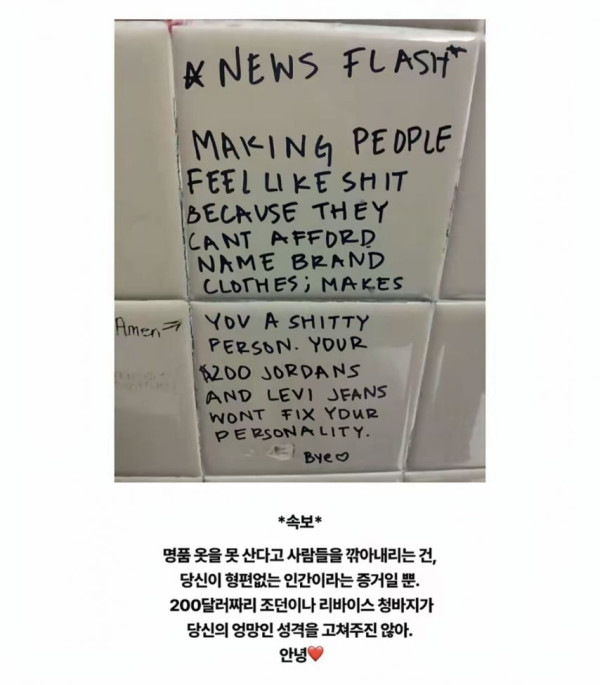 *NEWS FLASH*
MAKING PEOPLE
FEEL LIKE SHIT
BECAUSE THEY
CANT AFFORD
NAME BRAND
CLOTHES; MAKES
YOU A SHITTY
PERSON. YOUR
$200 JORDANS
AND LEVI JEANS
WONT FIX YOUR
PERSONALITY.
Bye♡
Amen→
*속보*
명품 옷을 못 산다고 사람들을 깎아내리는 건,
당신이 형편없는 인간이라는 증거일 뿐.
200달러짜리 조던이나 리바이스 청바지가
당신의 엉망인 성격을 고쳐주진 않아.
안녕❤️